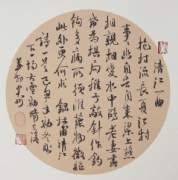 清江一曲
抱村流長夏江村
事事幽自去自來梁上燕
相親相近水中鷗老妻畫
紙為棋局稚子敲針作釣
鉤多病所須唯藥物微軀
此外更何求 錄杜甫清江